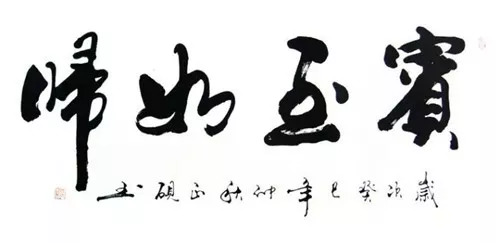 賓至如歸
歲次癸巳年仲秋正硯書